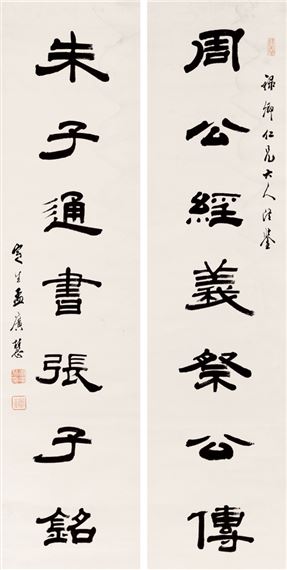 祿卿仁兄大人法鑒
周公經義祭公傳
朱子通書張子銘
定生孟廣慧